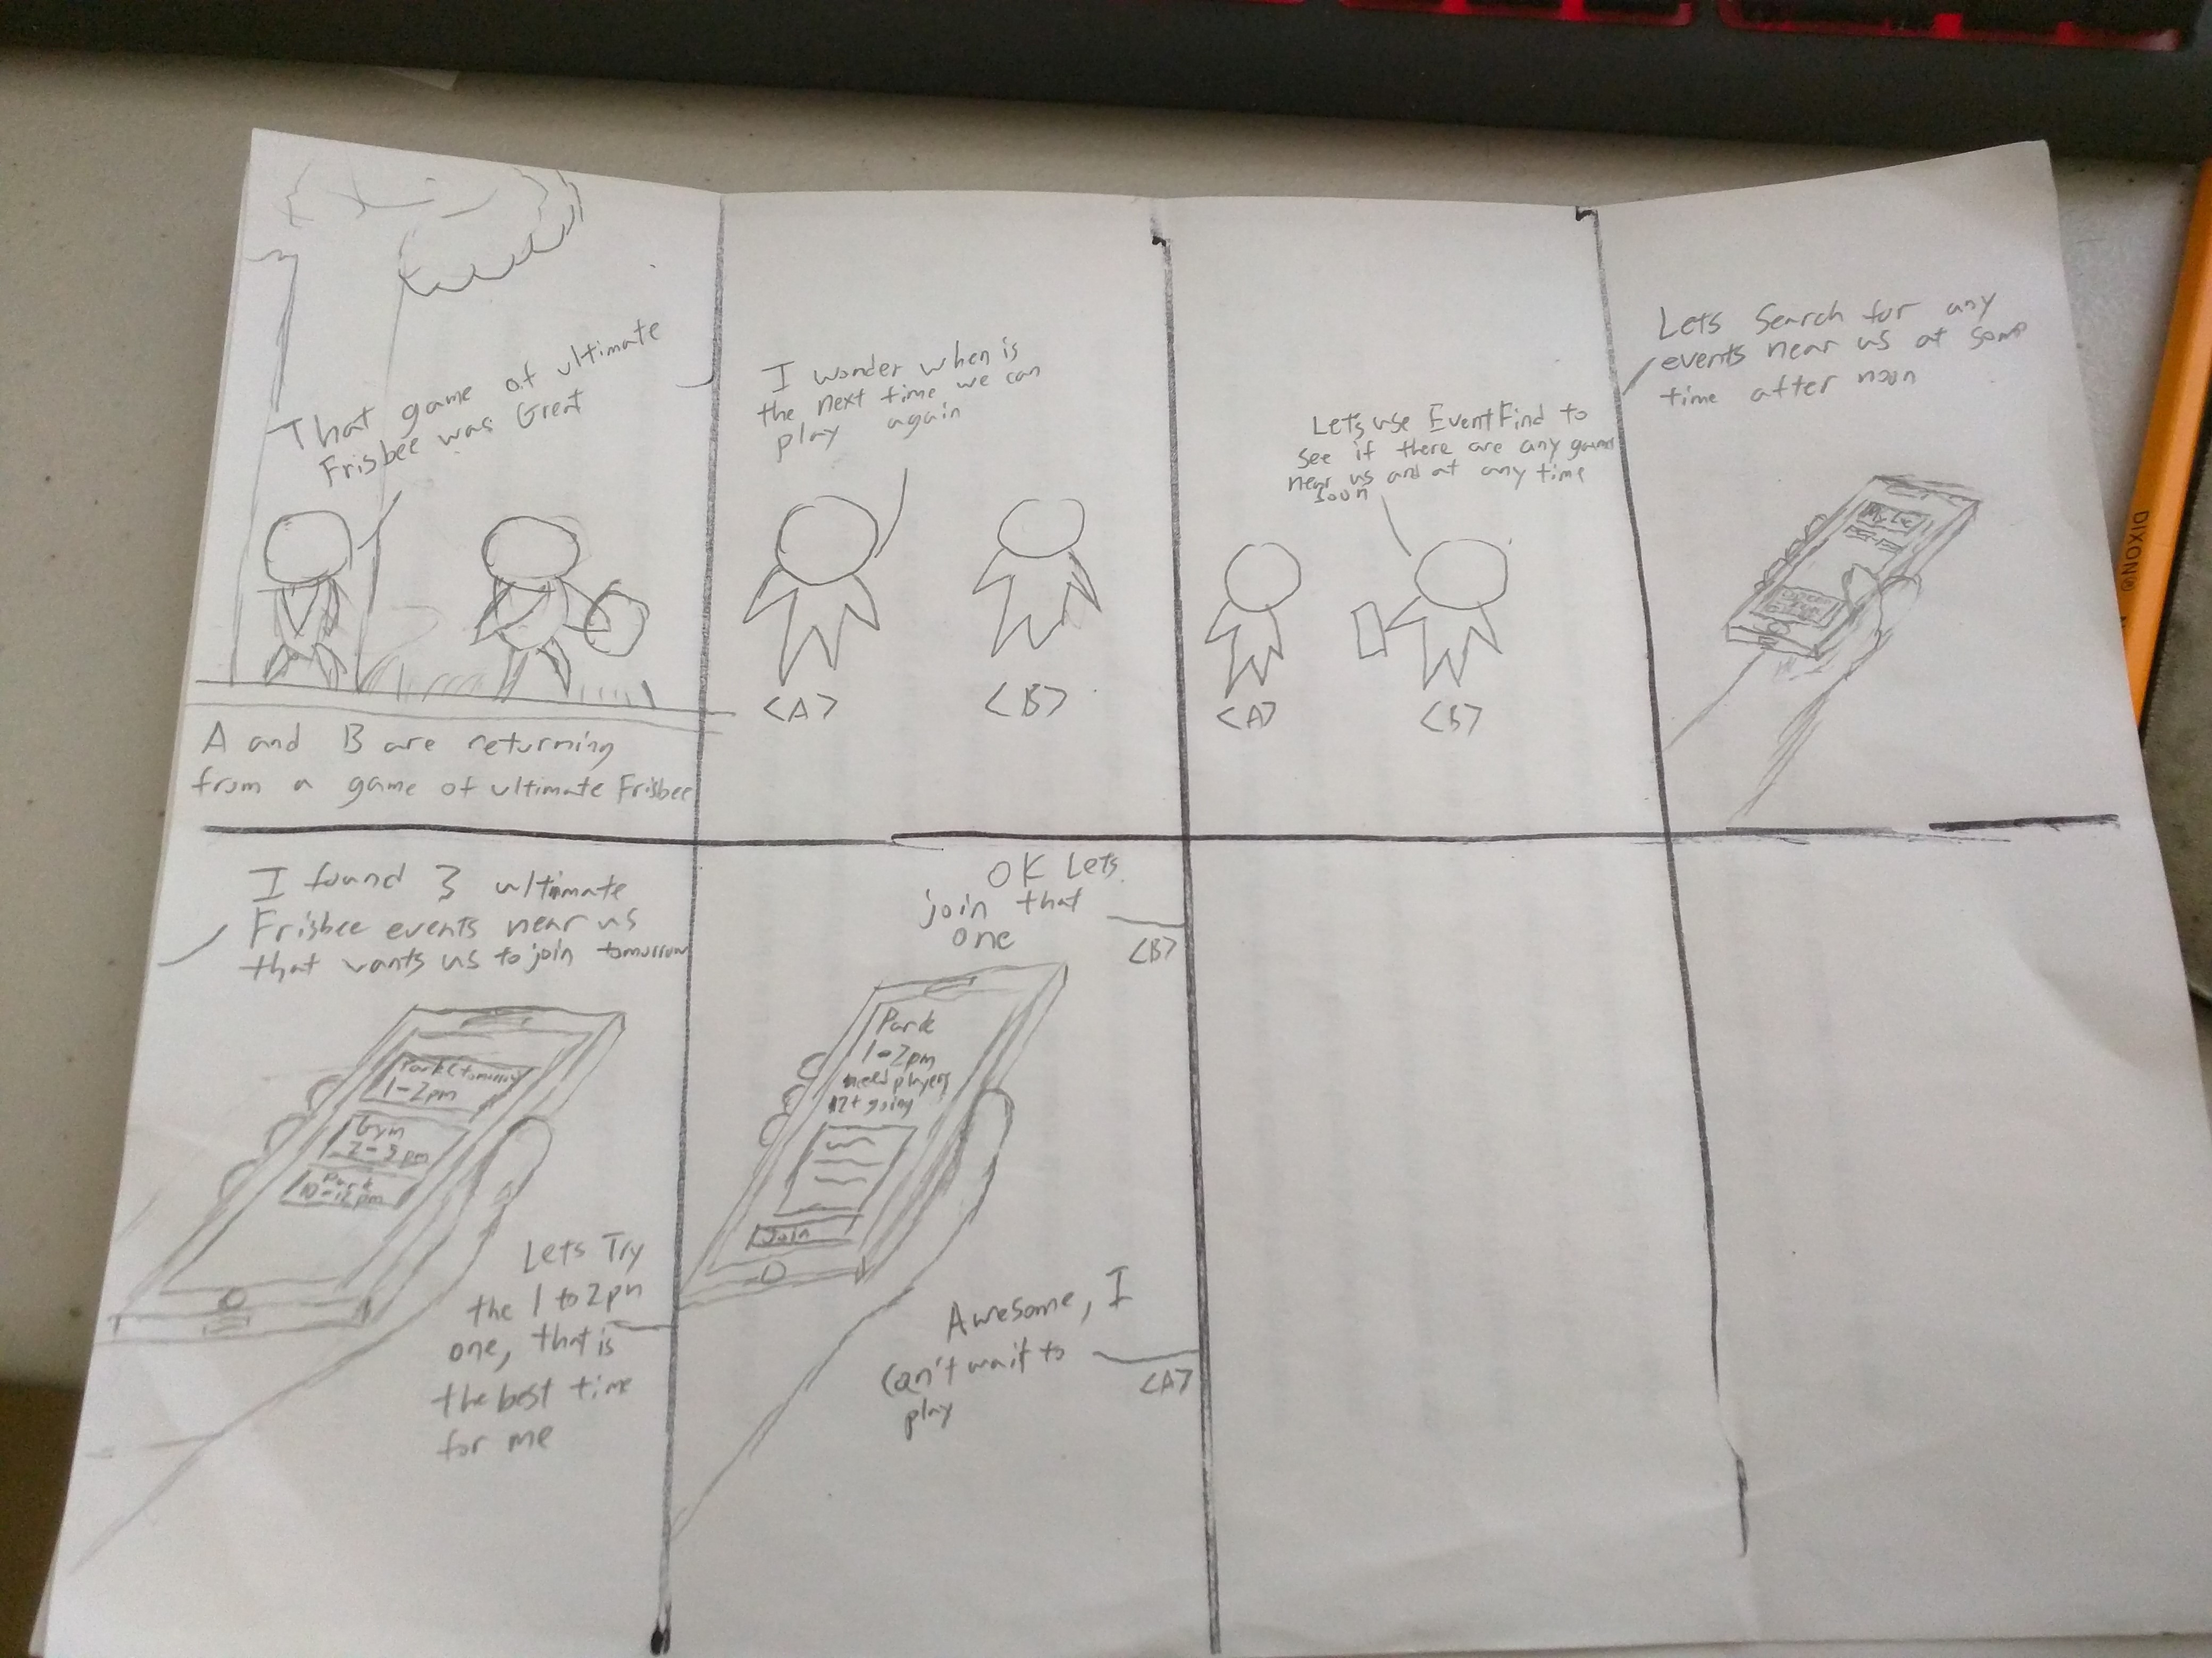 That game of ultimate
Frisbee was Great
A and B are returning
from a game of ultimate Frisbee
I wonder when is
the next time we can
play again
<A>
<B>
Lets use EventFind to
see if there are any games
near us and at any time
soon
<A>
<B>
Lets Search for any
events near us at some
time after noon
I found 3 ultimate
Frisbee events near us
that wants us to join tomorrow
Park (tomorrow)
1-2pm
Gym
2-3 pm
Park
10-12 pm
Lets Try
the 1 to 2pm
one, that is
the best time
for me
OK Lets
join that
one
<B>
Park
1-2pm
need players
12+ going
Join
Awesome, I
can't wait to
play
<A>
DIXON®